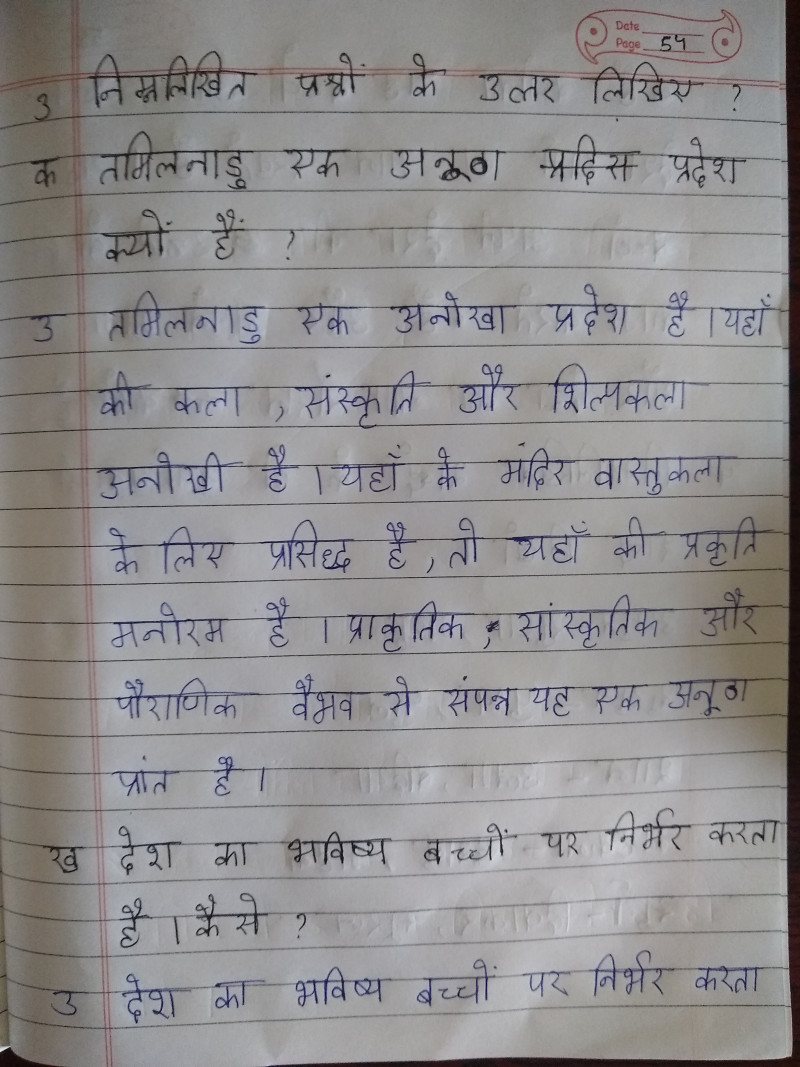 Date
Page 54
3 निम्नलिखित प्रश्नों के उत्तर लिखिए ?
क तमिलनाडु एक अनूठा प्रदिस प्रदेश
क्यों हैं ?
उ तमिलनाडु एक अनोखा प्रदेश है । यहाँ
की कला , संस्कृति और शिल्पकला
अनोखी है । यहाँ के मंदिर वास्तुकला
के लिए प्रसिद्ध है , तो यहाँ की प्रकृति
मनोरम है । प्राकृतिक , सांस्कृतिक और
पौराणिक वैभव से संपन्न यह एक अनूठा
प्रांत है ।
ख देश का भविष्य बच्चों पर निर्भर करता
है । कैसे ?
उ देश का भविष्य बच्चों पर निर्भर करता